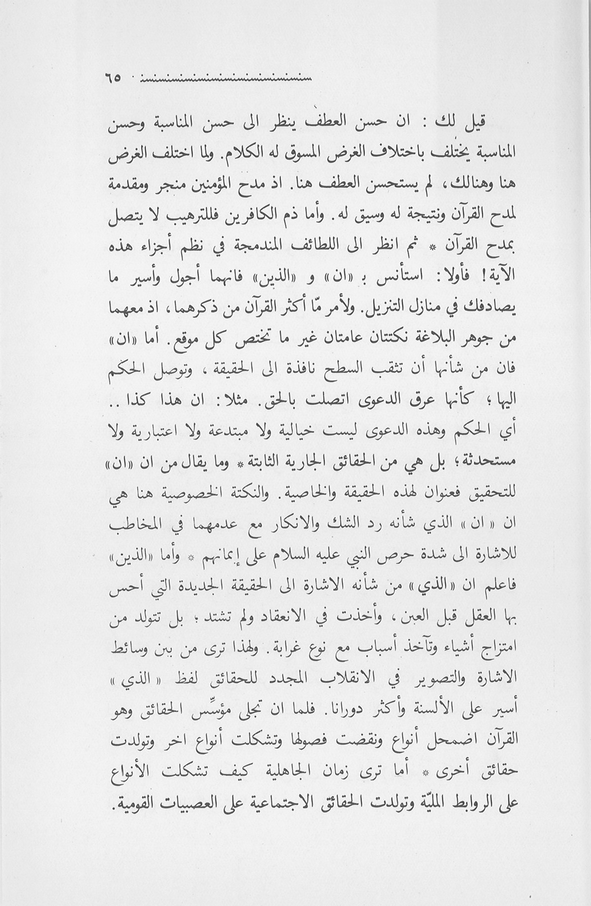 ٦٥
قيل لك : ان حسن العطف ينظر الى حسن المناسبة وحسن
المناسبة يختلف باختلاف الغرض المسوق له الكلام. ولما اختلف الغرض
هنا وهنالك، لم يستحسن العطف هنا. اذ مدح المؤمنين منجر ومقدمة
لمدح القرآن ونتيجة له وسيق له. وأما ذم الكافرين فللترهيب لا يتصل
بمدح القرآن * ثم انظر الى اللطائف المندمجة في نظم أجزاء هذه
الآية! فأولا: استأنس بـ «ان» و «الذين» فانهما أجول وأسير ما
يصادفك في منازل التنزيل. ولأمر مّا أكثر القرآن من ذكرهما، اذ معهما
من جوهر البلاغة نكتتان عامتان غير ما تختص كل موقع. أما «ان»
فان من شأنها أن تثقب السطح نافذة الى الحقيقة ، وتوصل الحكم
اليها ؛ كأنها عرق الدعوى اتصلت بالحق. مثلا: ان هذا كذا ..
أي الحكم وهذه الدعوى ليست خيالية ولا مبتدعة ولا اعتبارية ولا
مستحدثة؛ بل هي من الحقائق الجارية الثابتة * وما يقال من ان «ان»
للتحقيق فعنوان لهذه الحقيقة والخاصية. والنكتة الخصوصية هنا هي
ان « ان » الذي شأنه رد الشك والانكار مع عدمهما في المخاطب
للاشارة الى شدة حرص النبي عليه السلام على إيمانهم * وأما «الذين»
فاعلم ان «الذي» من شأنه الاشارة الى الحقيقة الجديدة التي أحس
بها العقل قبل العين ، وأخذت في الانعقاد ولم تشتد ؛ بل تتولد من
امتزاج أشياء وتآخذ أسباب مع نوع غرابة. ولهذا ترى من بين وسائط
الاشارة والتصوير في الانقلاب المجدد للحقائق لفظ « الذي »
أسير على الألسنة وأكثر دورانا. فلما ان تجلى مؤسِّس الحقائق وهو
القرآن اضمحل أنواع ونقضت فصولها وتشكلت أنواع اخر وتولدت
حقائق أخرى * أما ترى زمان الجاهلية كيف تشكلت الأنواع
على الروابط المليّة وتولدت الحقائق الاجتماعية على العصبيات القومية.